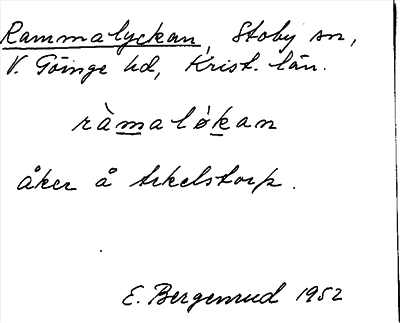 Rammalyckan, Stoby sn,
V. Göinge hd, Krist. län.
ràmaløkan
åker å Arkelstorp.
E. Bergenrud 1952